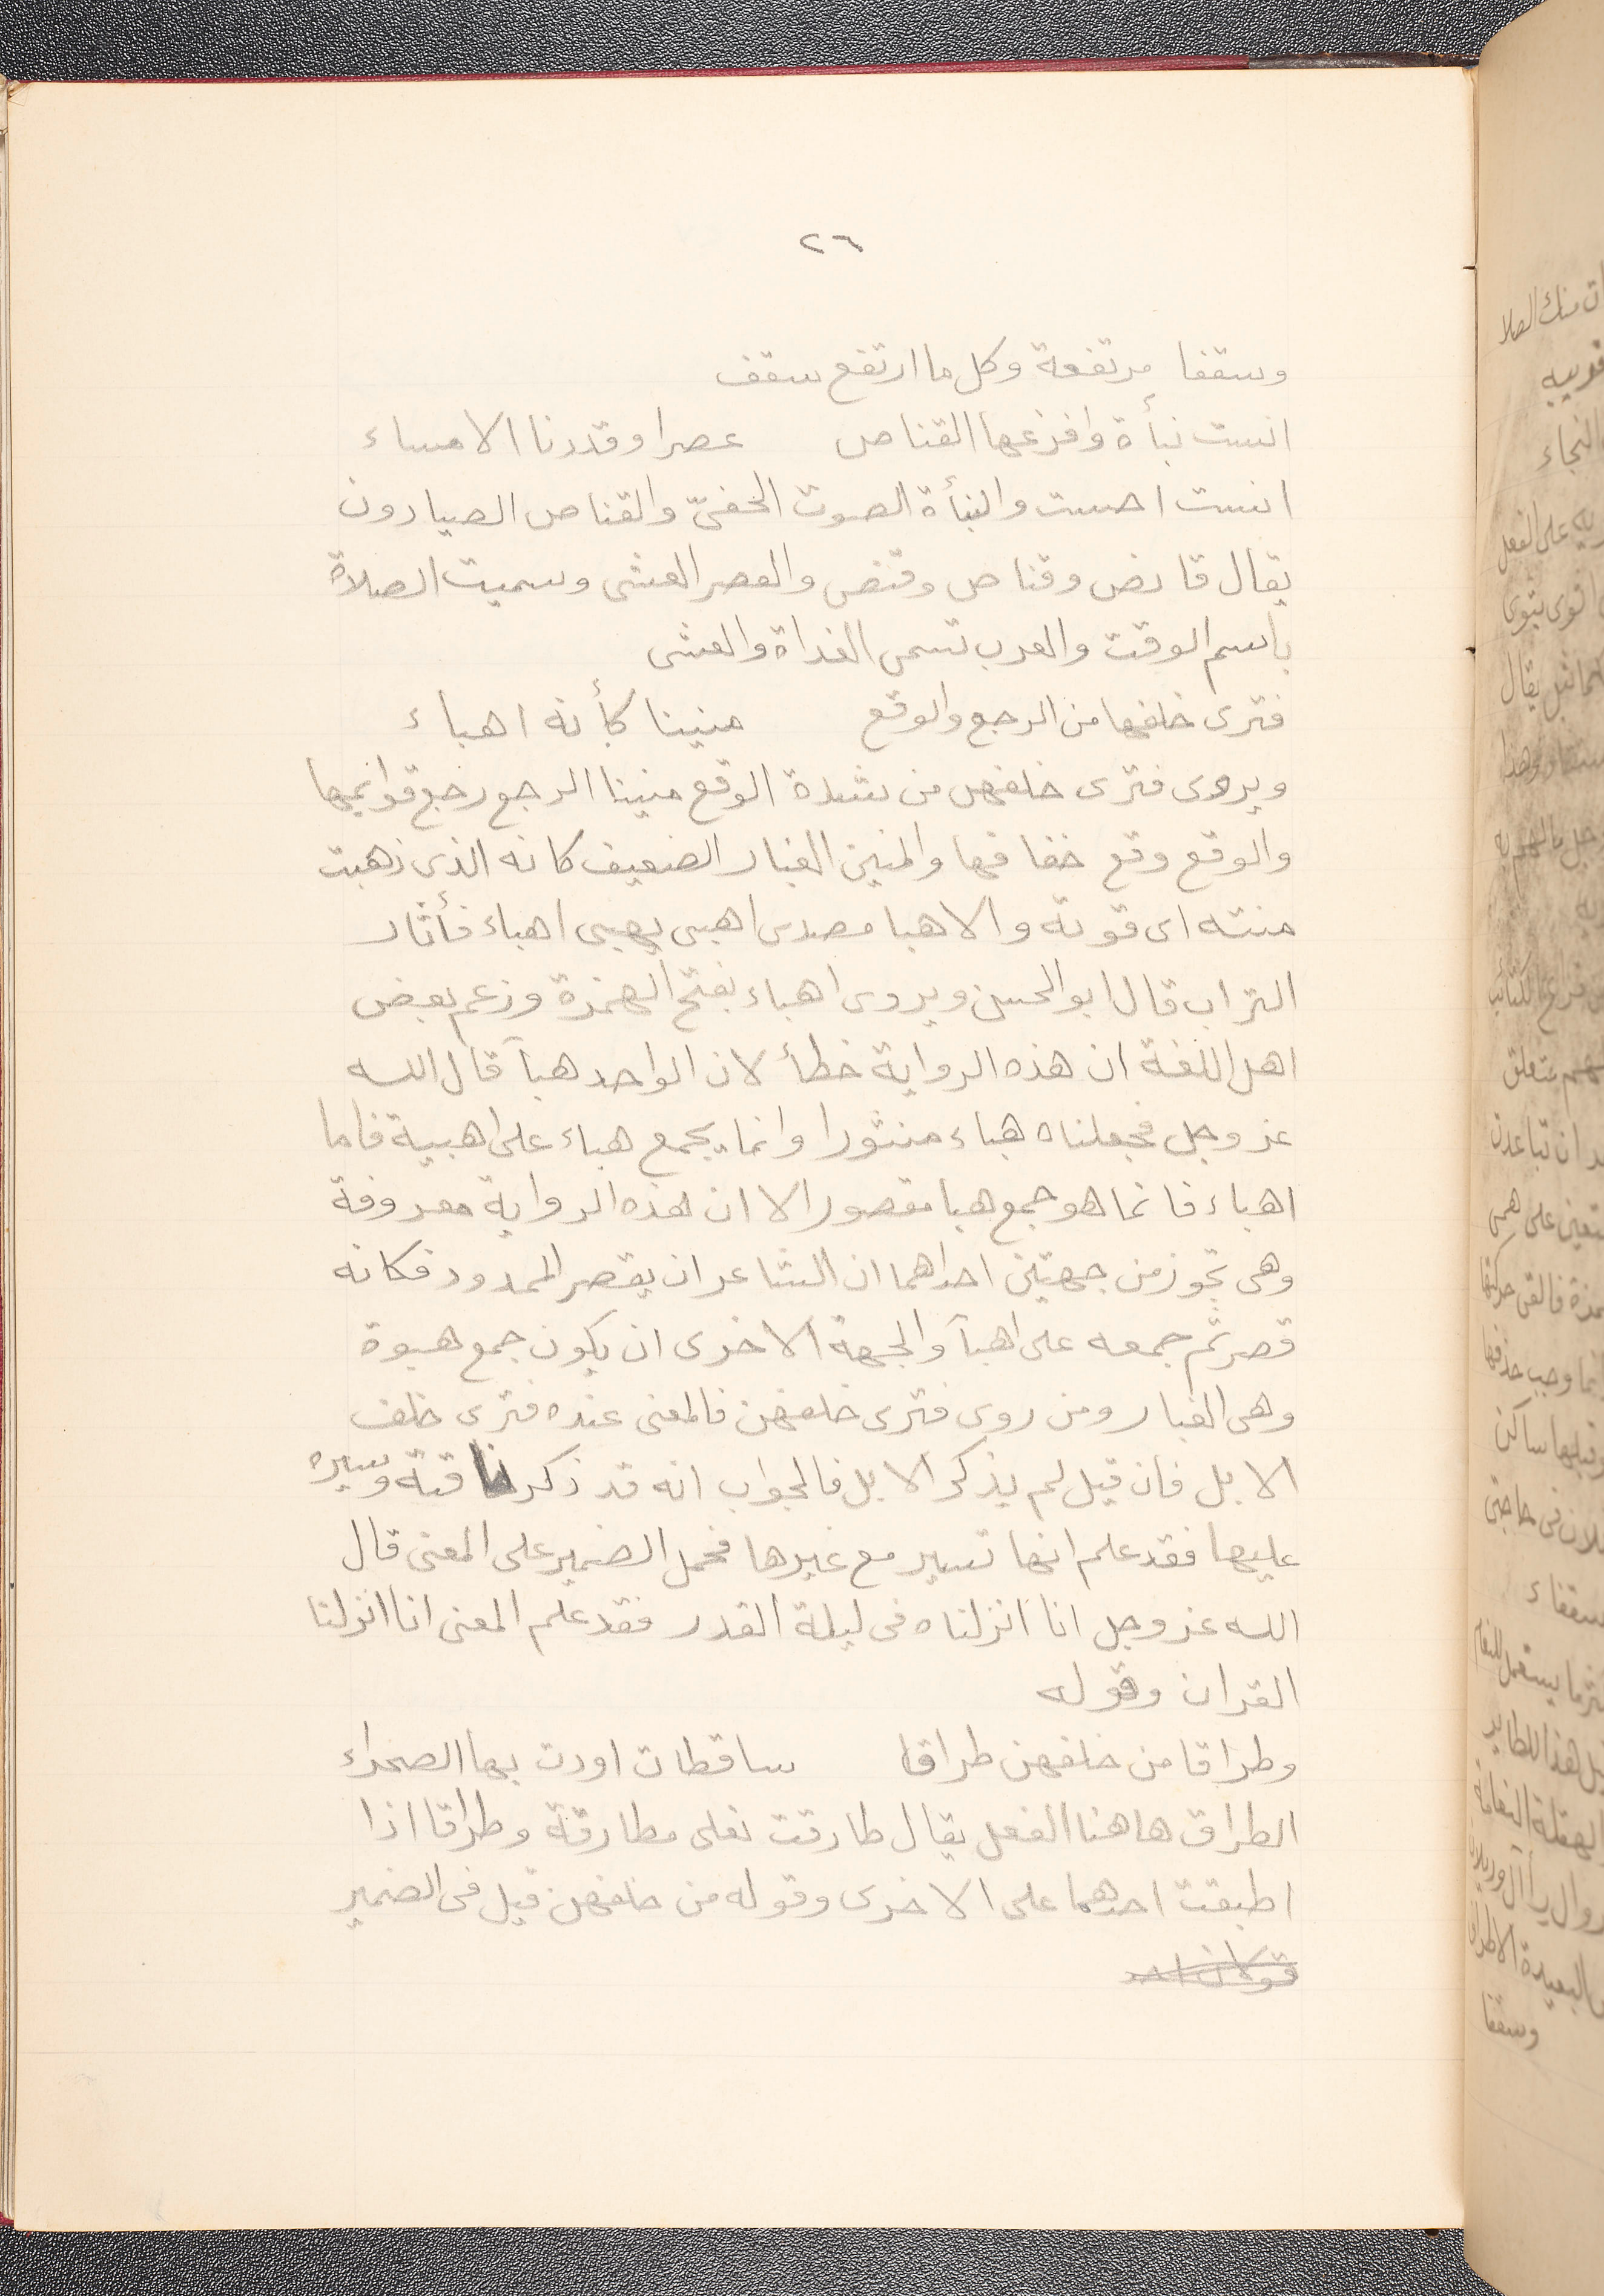 ٢٦
وسقفا مرتفعة وكل ما ارتفع سقف
انست نبأة وافزعها القناص عصرا وقددنا الامساء
انست احست والنبأة الصوت الخفىّ والقناص الصيادون
يقال قانص وقناص وقنص والعصر العشى وسميت الصلاة
باسم الوقت والعرب تسمى الغداة والعشى
فترى خلفها من الرجع والوقع منينا كأنه اهباء
ويروى فترى خلفهن من شدة الوقع منينا الرجع رجع قوائمها
والوقع وقع خفافها والمنين الغبار الضعيف كانه الذى ذهبت
منته اى قوته والاهبا مصدر اهبى يهبى اهباء فأثار
التراب قال ابو الحسن ويروى اهباء بفتح الهمزة وزعم بعض
اهل اللغة ان هذه الرواية خطأ لان الواحد هبآ قال الله
عز وجل فجعلناه هباء منثورا وانما يجمع هباء على اهبية فاما
اهباء فانما هو جمع هبا مقصور الا ان هذه الرواية معروفة
وهى تجوز من جهتين احداهما ان الشاعر ان يقصر الممدود فكانه
قصر ثم جمعه على اهبآ والجهة الاخرى ان يكون جمع هبوة
وهى الغبار ومن روى فترى خلفهن فالمعنى عنده فترى خلف
الابل فان قيل لم يذكر الابل فالجواب انه قد ذكر ناقته وسيره
عليها فقد علم انها تسير مع غيرها فحمل الضمير على المعنى قال
الله عز وجل انا انزلناه فى ليلة القدر فقد علم المعنى انا انزلنا
القران وقوله
وطراقا من خلفهن طراقا ساقطات اودت بها الصحراء
الطراق هاهنا الفعل يقال طارقت نعلى مطارقة وطراقا اذا
اطبقت احدهما على الاخرى وقوله من خلفهن قيل فى الضمير
قولان احد